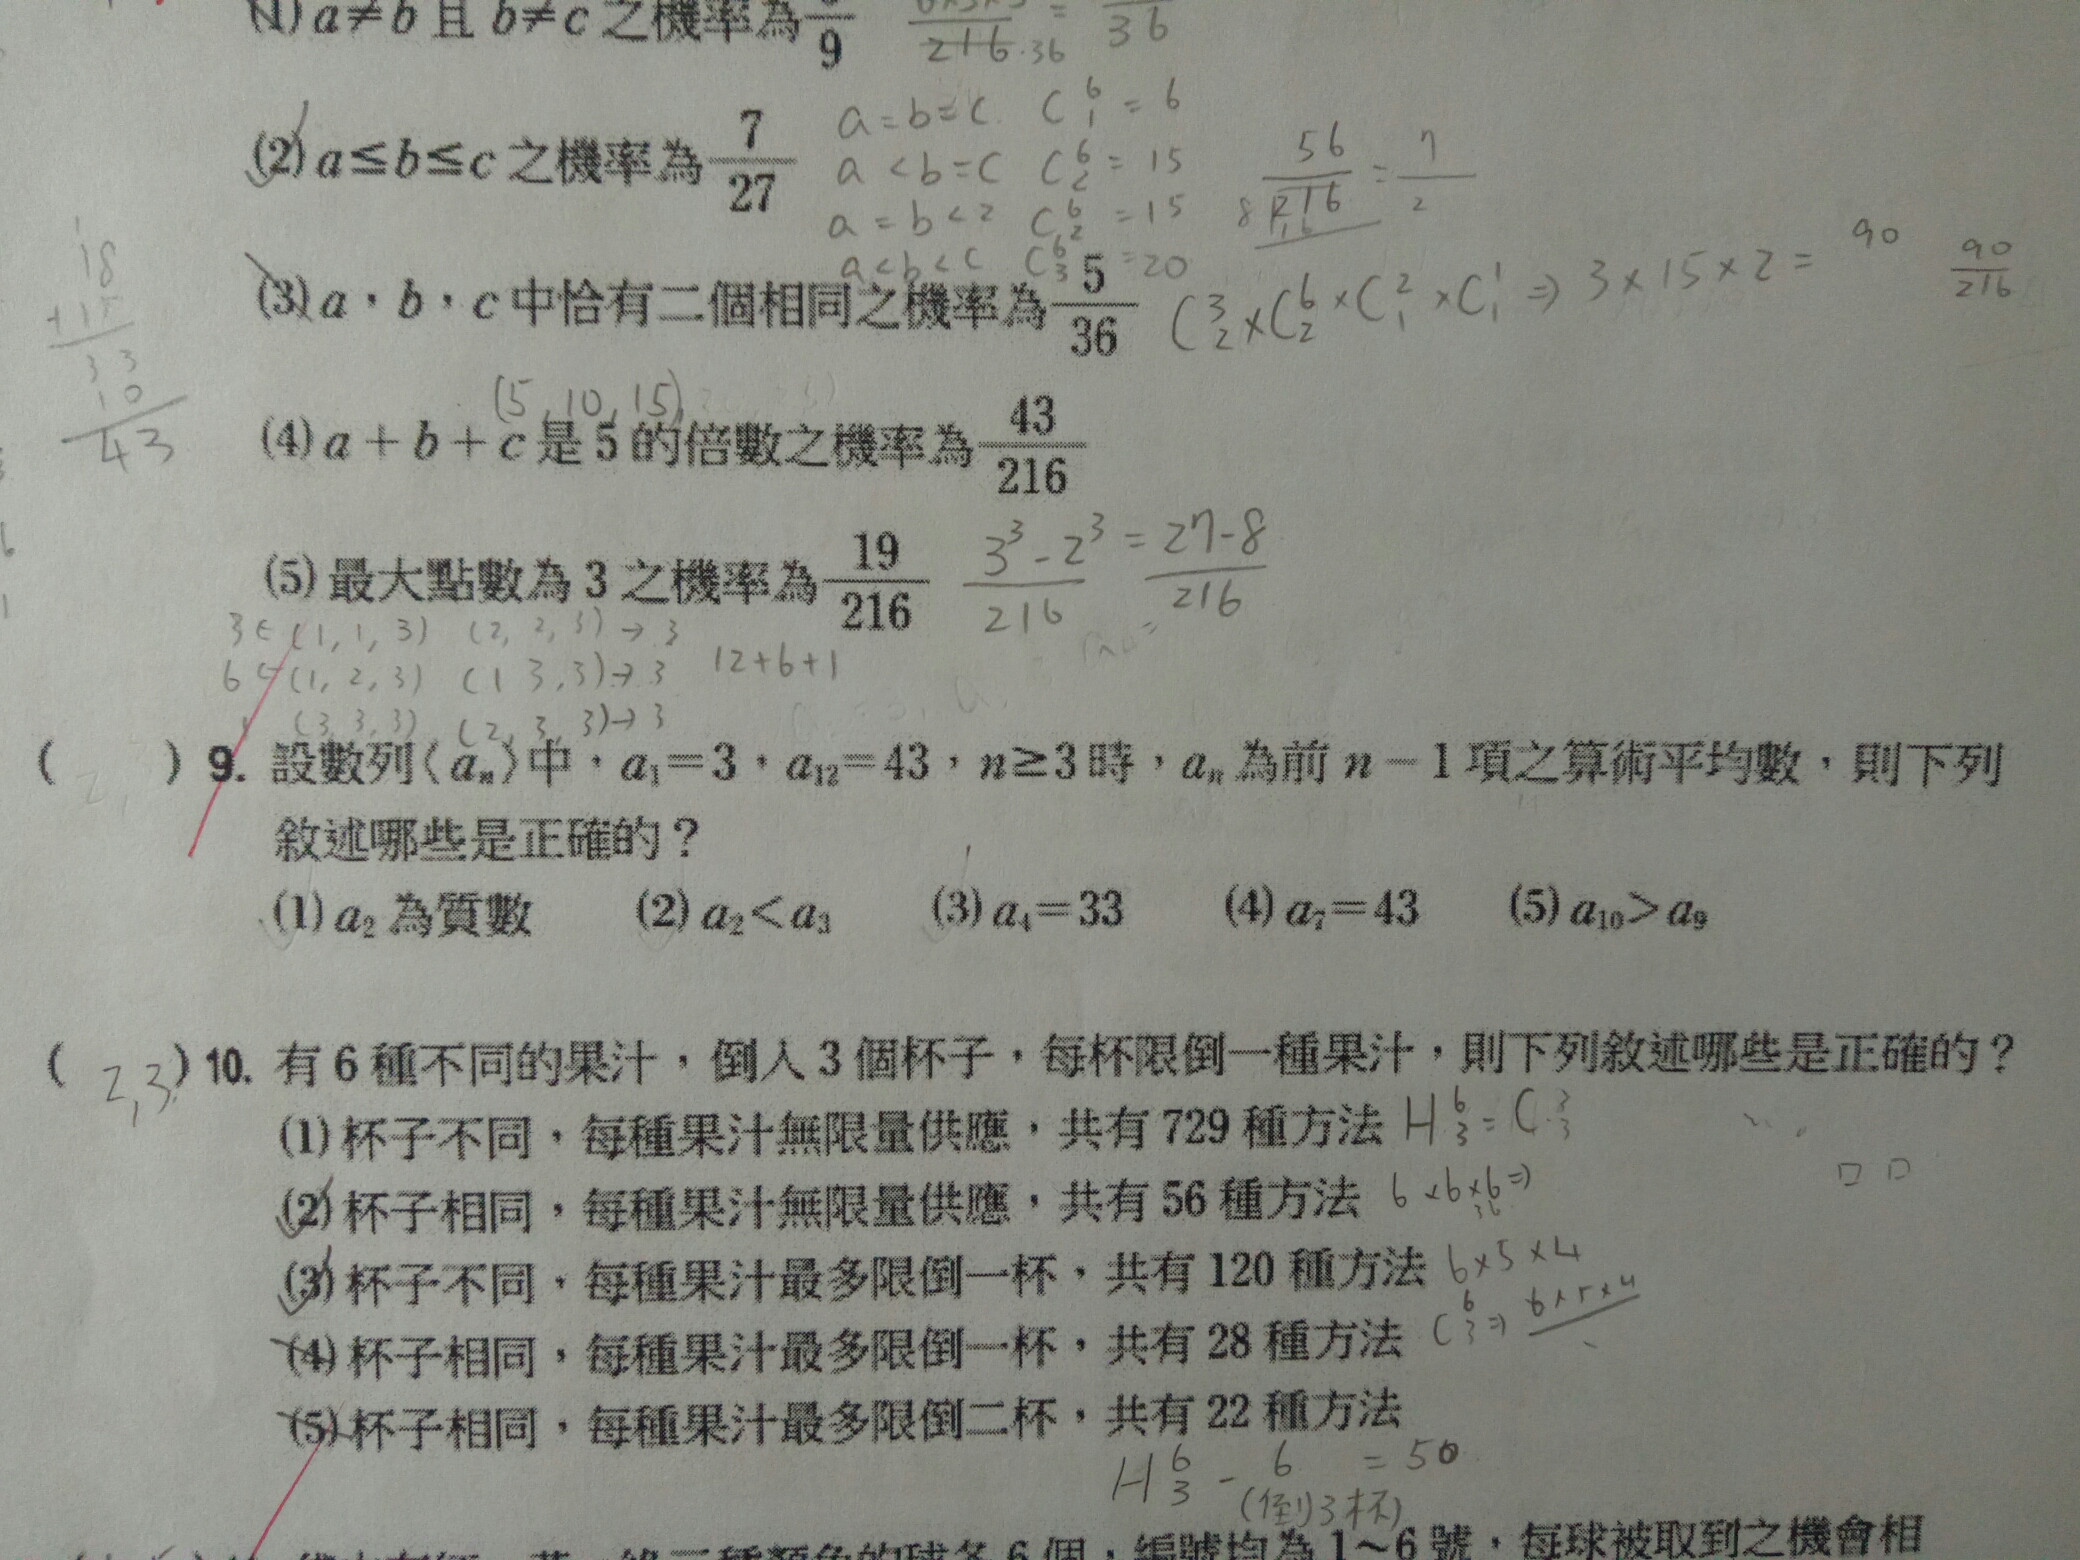 (1) a≠b 且 b≠c 之機率為 /9 216·36 = /36
(2) a≤b≤c 之機率為 7/27
a=b=c C⁶₁ = 6
a<b=c C⁶₂ = 15
a=b<2 C⁶₂ = 15
a<b<c C⁶₃ = 20
56/216 = 7/2
18
+15
33
10
43
(3) a，b，c 中恰有二個相同之機率為 5/36 C³₂×C⁶₂×C²₁×C¹₁ ⇒ 3×15×2 = 90 90/216
(5,10,15)
(4) a＋b＋c 是 5 的倍數之機率為 43/216
(5) 最大點數為 3 之機率為 19/216 3³-2³/216 = 27-8/216
3 ← (1,1,3) (2,2,3)→3
6 ← (1,2,3) (1 3,3)→3 12+6+1
1 (3,3,3) (2,3,3)→3
( ) 9. 設數列〈aₙ〉中，a₁＝3，a₁₂＝43，n≥3 時，aₙ 為前 n－1 項之算術平均數，則下列
敘述哪些是正確的？
(1) a₂ 為質數 (2) a₂＜a₃ (3) a₄＝33 (4) a₇＝43 (5) a₁₀＞a₉
( 2,3 ) 10. 有 6 種不同的果汁，倒入 3 個杯子，每杯限倒一種果汁，則下列敘述哪些是正確的？
(1) 杯子不同，每種果汁無限量供應，共有 729 種方法 H⁶₃ = C
(2) 杯子相同，每種果汁無限量供應，共有 56 種方法 6×6×6⇒ 36
(3) 杯子不同，每種果汁最多限倒一杯，共有 120 種方法 6×5×4
(4) 杯子相同，每種果汁最多限倒一杯，共有 28 種方法 C⁶₃ ⇒ 6×5×4
(5) 杯子相同，每種果汁最多限倒二杯，共有 22 種方法
H⁶₃ - 6 = 50
(倒3杯)
種顏色的球各 6 個，編號均為 1～6 號，每球被取到之機會相